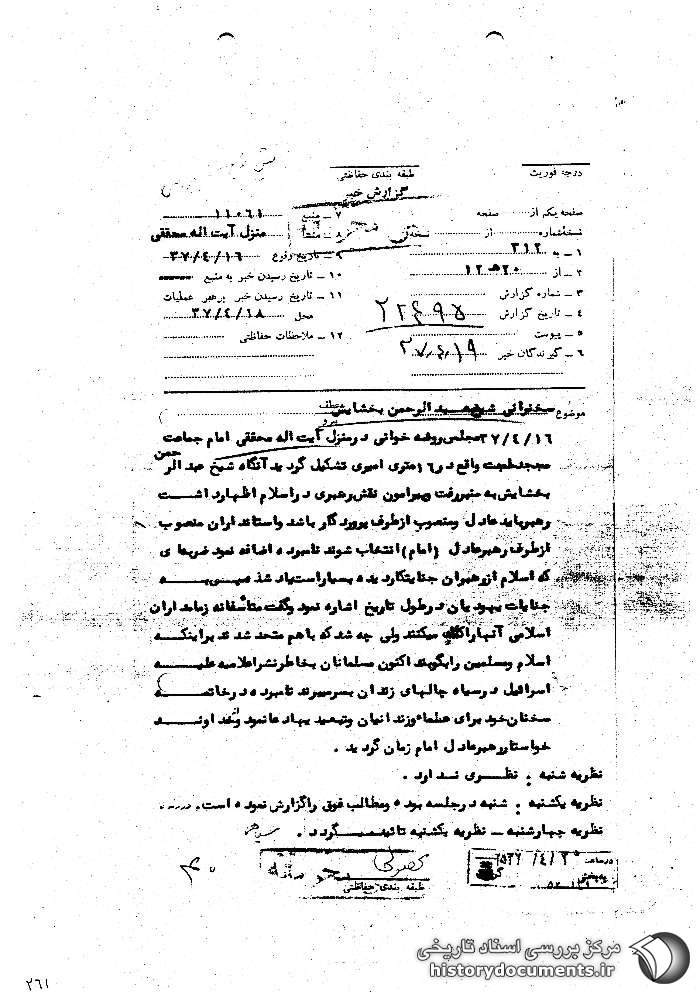 درجه فوریت
طبقه بندی حفاظتی
گزارش خبر
صفحه یکم از صفحه
نسخه شماره از
۱ ـ به ۳۱۲
۲ ـ از ۲۰ هـ ۱۲
۳ ـ شماره گزارش
۴ ـ تاریخ گزارش
۵ ـ پیوست
۶ ـ گیرندگان خبر
۷ ـ منبع ۱۱۰۶۱
۸ ـ منشأ منزل آیت اله محققی
۹ ـ تاریخ وقوع ۳۷/۴/۱۶
۱۰ ـ تاریخ رسیدن خبر به منبع
۱۱ ـ تاریخ رسیدن خبر برهبر عملیات
محل ۳۷/۴/۱۸
۱۲ ـ ملاحظات حفاظتی
موضوع سخنرانی شیخ عبد الرحمن بخشایش
عطف
پیرو
۳۷/۴/۱۶ مجلس روضه خوانی در منزل آیت اله محققی امام جماعت
مسجد واقع در ۱۶ متری امیری تشکیل گردید آنگاه شیخ عبد الرحمن
بخشایش به منبر رفت و پیرامون نقش رهبری در اسلام اظهار داشت
رهبر باید عادل و منصوب از طرف پروردگار باشد و استانداران منصوب
از طرف رهبر عادل (امام) انتخاب شوند نامبرده اضافه نمود ضربه‌ای
که اسلام از رهبران جنایتکار دیده بسیار است یاد شده سپس به
جنایات یهودیان در طول تاریخ اشاره نمود و گفت متأسفانه زمامداران
اسلامی آنها را میکنند ولی چه شد که با هم متحد شدند براینکه
اسلام و مسلمین را بکوبند اکنون مسلمانان بخاطر نشر اعلامیه علیه
اسرائیل در سیاه چالهای زندان بسر میبرند نامبرده در خاتمه
سخنان خود برای علماء و زندانیان و تبعید یها دعا نمود و از خداوند
خواستار رهبر عادل امام زمان گردید .
نظریه شنبه : نظری ندارد .
نظریه یکشنبه : شنبه در جلسه بوده و مطالب فوق را گزارش نموده است .
نظریه چهارشنبه ـ نظریه یکشنبه تائید میگردد .
محرمانه
طبقه بندی حفاظتی
۲۶۱
مرکز بررسی اسناد تاریخی
historydocuments.ir